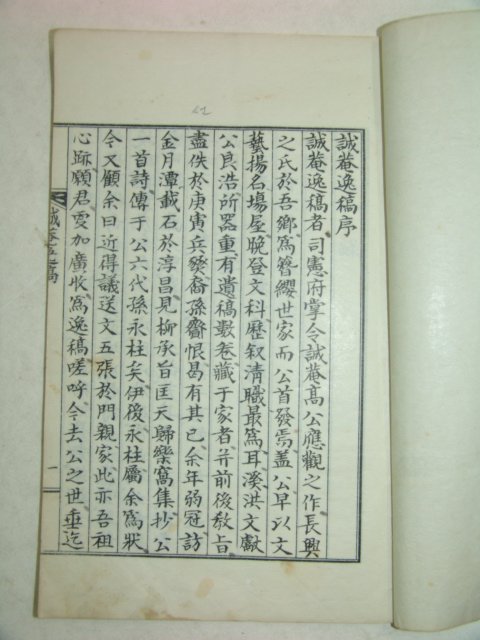 誠菴逸稿序
誠菴逸稿者司憲府掌令誠菴高公應觀之作長興
之氏於吾鄉爲簪纓世家而公首發焉盖公早以文
藝揚名場屋晩登文科歷叙淸職最爲耳溪洪文獻
公良浩所器重有遺稿數卷藏于家者并前後敎旨
盡佚於庚寅兵燹裔孫齎恨曷有其已余年弱冠訪
金月潭載石於淳昌見柳承旨匡天歸樂窩集抄公
一首詩傳于公六代孫永柱矣伊後永柱屬余爲狀
今又顧余曰近得議送文五張於門親家此亦吾祖
心跡願君更加廣收爲逸稿嗟呼今去公之世垂迄
誠菴逸稿
一